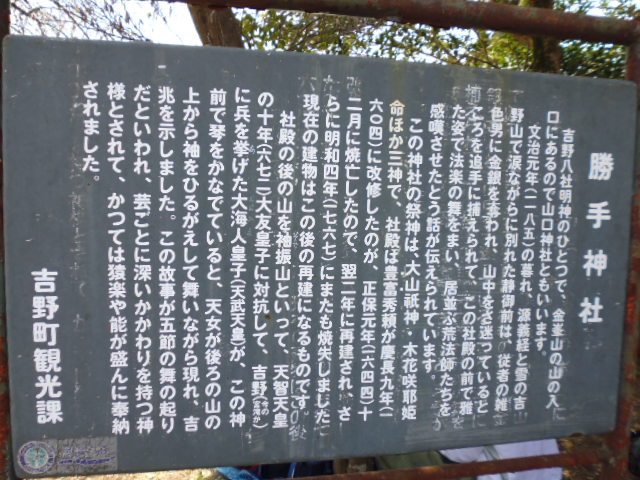 勝手神社
吉野八社明神のひとつで、金峯山の山の入
口にあるので山口神社ともいいます。
文治元年(一一八五)の暮れ、源義経と雪の吉
野山で涙ながらに別れた静御前は、従者の雑
色男に金銀を奪われ、山中をさ迷っていると
ころを追手に捕えられて、この社殿の前で雅
た姿で法楽の舞をまい、居並ぶ荒法師たちを
感嘆させたとう話が伝えられています。
この神社の祭神は、大山祇神・木花咲耶姫
命ほか三神で、社殿は豊富秀頼が慶長九年(一
六〇四)に改修したのが、正保元年(一六四四)十
二月に焼亡したので、翌二年に再建され、さ
らに明和四年(一七六七)にまたも焼失しました
現在の建物はこの後の再建になるものです。
社殿の後の山を袖振山といって、天智天皇
の十年(六七一)大友皇子に対抗して、吉野
に兵を挙げた大海人皇子(天武天皇)が、この神
前で琴をかなでていると、天女が後ろの山の
上から袖をひるがえして舞いながら現れ、吉
兆を示しました。この故事が五節の舞の起り
だといわれ、芸ごとに深いかかわりを持つ神
様とされて、かつては猿楽や能が盛んに奉納
されました。
吉野町観光課